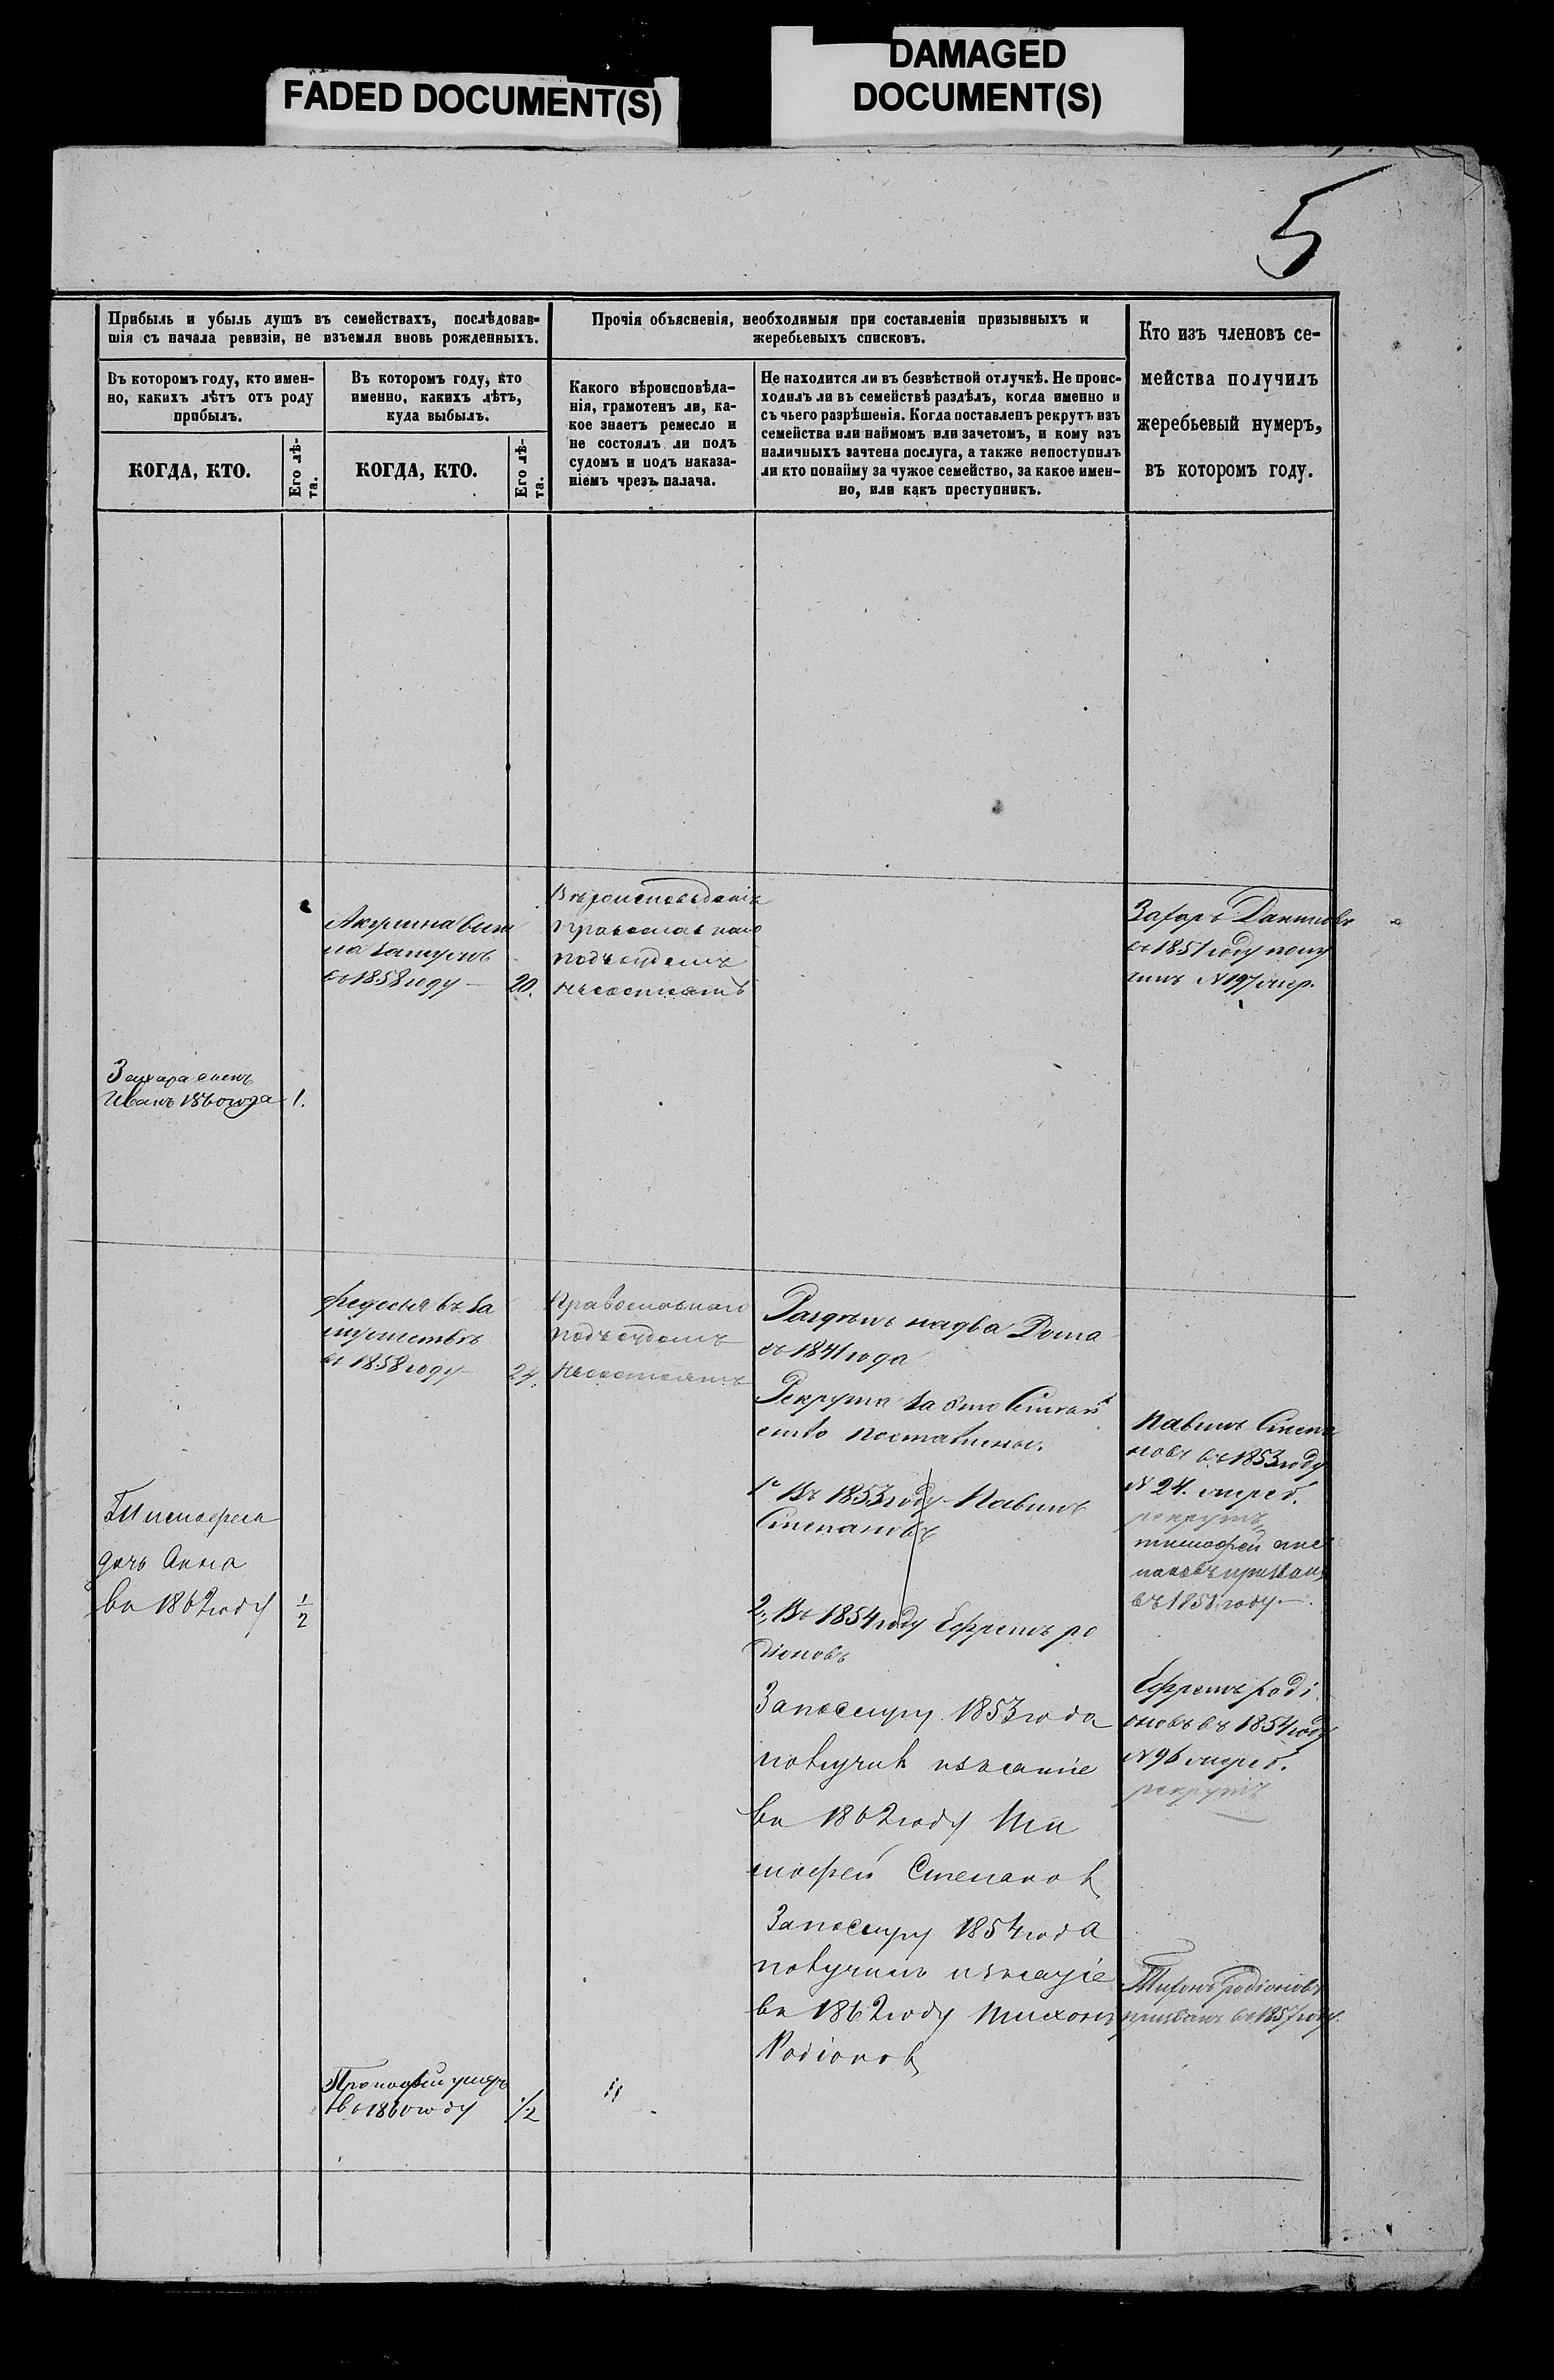 FADED DOCUMENT(S)
DAMAGED
DOCUMENT(S)
5
Прибыль и убыль душъ въ семействахъ, послѣдовав-
шія съ начала ревизіи, не изъемля вновь рожденныхъ.
Прочія объясненія, необходимыя при составленіи призывныхъ и
жеребьевыхъ списковъ.
Кто изъ членовъ се-
мейства получилъ
жеребьевый нумеръ,
въ которомъ году.
Въ которомъ году, кто имен-
но, какихъ лѣтъ отъ роду
прибылъ.
Въ которомъ году, кто
именно, какихъ лѣтъ,
куда выбылъ.
Какого вѣроисповѣда-
нія, грамотенъ ли, ка-
кое знаетъ ремесло и
не состоялъ ли подъ
судомъ и подъ наказа-
ніемъ чрезъ палача.
Не находится ли въ безвѣстной отлучкѣ. Не проис-
ходилъ ли въ семействѣ раздѣлъ, когда именно и
съ чьего разрѣшенія. Когда поставленъ рекрутъ изъ
семейства или наймомъ или зачетомъ, и кому изъ
наличныхъ зачтена послуга, а также непоступилъ
ли кто понайму за чужое семейство, за какое имен-
но, или какъ преступникъ.
КОГДА, КТО.
Его лѣ-
та.
КОГДА, КТО.
Его лѣ-
та.
Акулина
въ 1858 году 20.
Вѣроисповѣданія
Православнаго
подъ судомъ
несостоятъ
Захаръ Даниловъ
въ 1851 году полу
чилъ №197
Захара сынъ
Иванъ 1860 года 1.
Федосья въ за
мужество
въ 1858 году 24.
Православнаго
подъ судомъ
несостоятъ
Раздѣлъ на два Дома
въ 1841 года
Рекрута за
поставлены.
1е Въ 1853 году Павелъ
Степановъ
2, Въ 1854 году Ефремъ ро
діоновъ
За 1853 года
получилъ
въ 1862 году Ти
мофей Степановъ
За 1854 года
получилъ
въ 1862 году Тихонъ
Родіоновъ
Павелъ Степа
новъ въ 1853 году
№ 24.
рекрутъ
тимофей сте
пановъ призванъ
въ 1858 году
Ефремъ роді
оновъ въ 1854 году
№96
рекрутъ
Тихонъ родіоновъ
призванъ въ 1857 году
Тимофея
дочь Анна
въ 1862 году 1/2
Прокофій умеръ
въ 1860 году 1/2
"